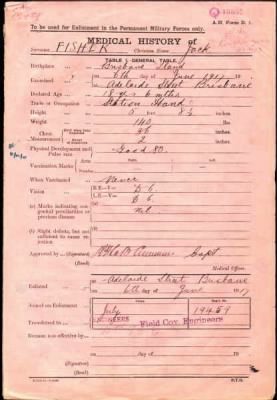 A.M. Form D. 1.
To be used for Enlistment in the Permanent Military Forces only.
MEDICAL HISTORY of
Surname FISHER Christian Name Jack
TABLE I—GENERAL TABLE.
Birthplace Brisbane
Examined 6th day of June 1917
at Adelaide Street Brisbane
Declared Age 18 yrs 6 mths
Trade or Occupation Station Hand
Height 5 feet 8½ inches
Weight 140 lbs
Chest Measurement 36
2
Physical Development and Pulse rate Good
Vaccination Marks
When Vaccinated Never
Vision R.E.—V= D 6.
L.E.—V= D 6.
(a) Marks indicating congenital peculiarities or previous disease nil.
(b) Slight defects, but not sufficient to cause rejection
Approved by—(Signature) Capt
(Rank) Medical Officer.
Enlisted at Adelaide Street Brisbane
6th day of June 1917
Joined on Enlistment July 19459
Transferred to Field Coy. Engineers
Became non effective by
on day of 19
(Signature)
(Rank)
P.T.O.